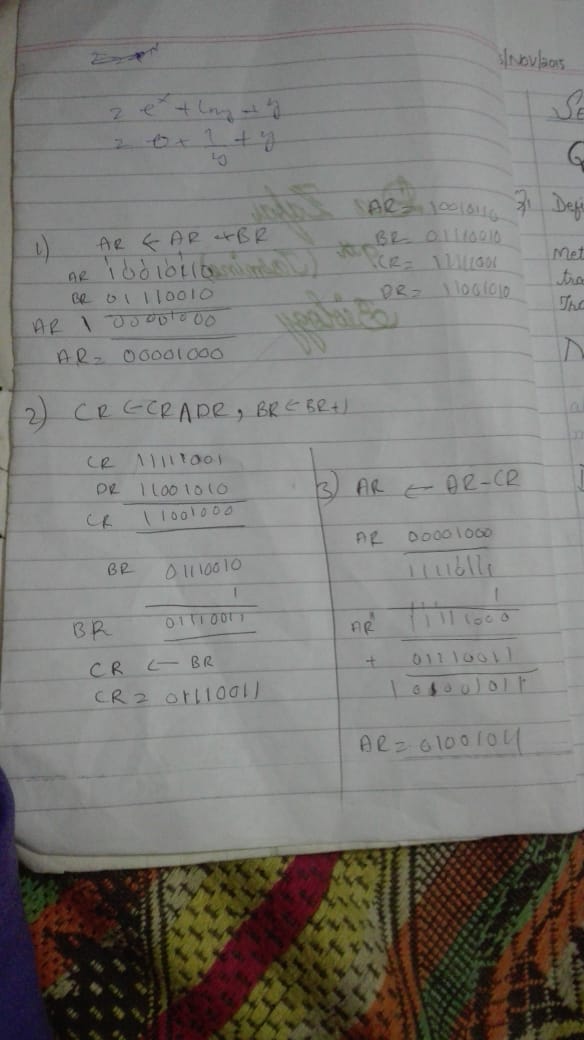 2 e^x + lny + y
2 0 + 1/y + y
5/Nov/2015
AR = 10010110
BR = 01110010
CR = 11111001
DR = 11001010
1) AR ← AR + BR
AR 10010110
BR 01110010
AR 1 00001000
AR = 00001000
2) CR ← CR ∧ DR, BR ← BR+1
CR 11111001
DR 11001010
CR 11001000
BR 01110010
1
BR 01110011
CR ← BR
CR = 01110011
3) AR ← AR - CR
AR 00001000
11110111
1
AR 11111000
+ 01110011
1 01001011
AR = 01001011
Q
Defi
Met
tra
Tho